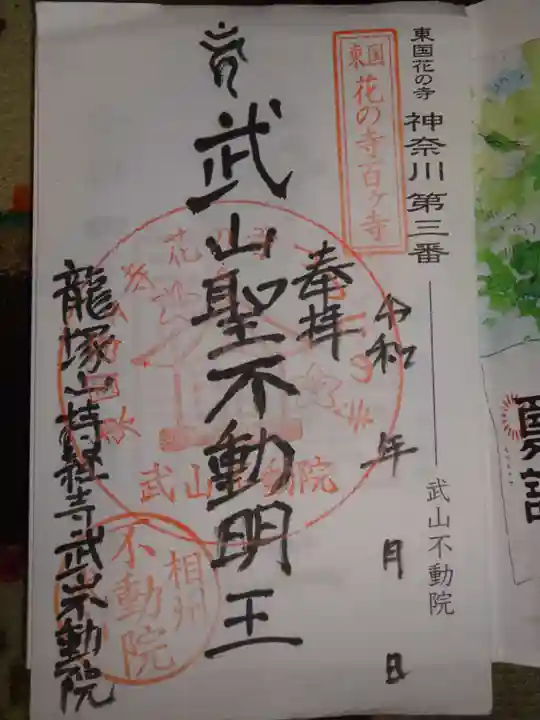 東国花の寺 神奈川第三番 武山不動院
東国
花の寺百ヶ寺
令和 年 月 日
奉拝
武山聖不動明王
武山不動院
相州
不動院
龍塚山持経寺武山不動院